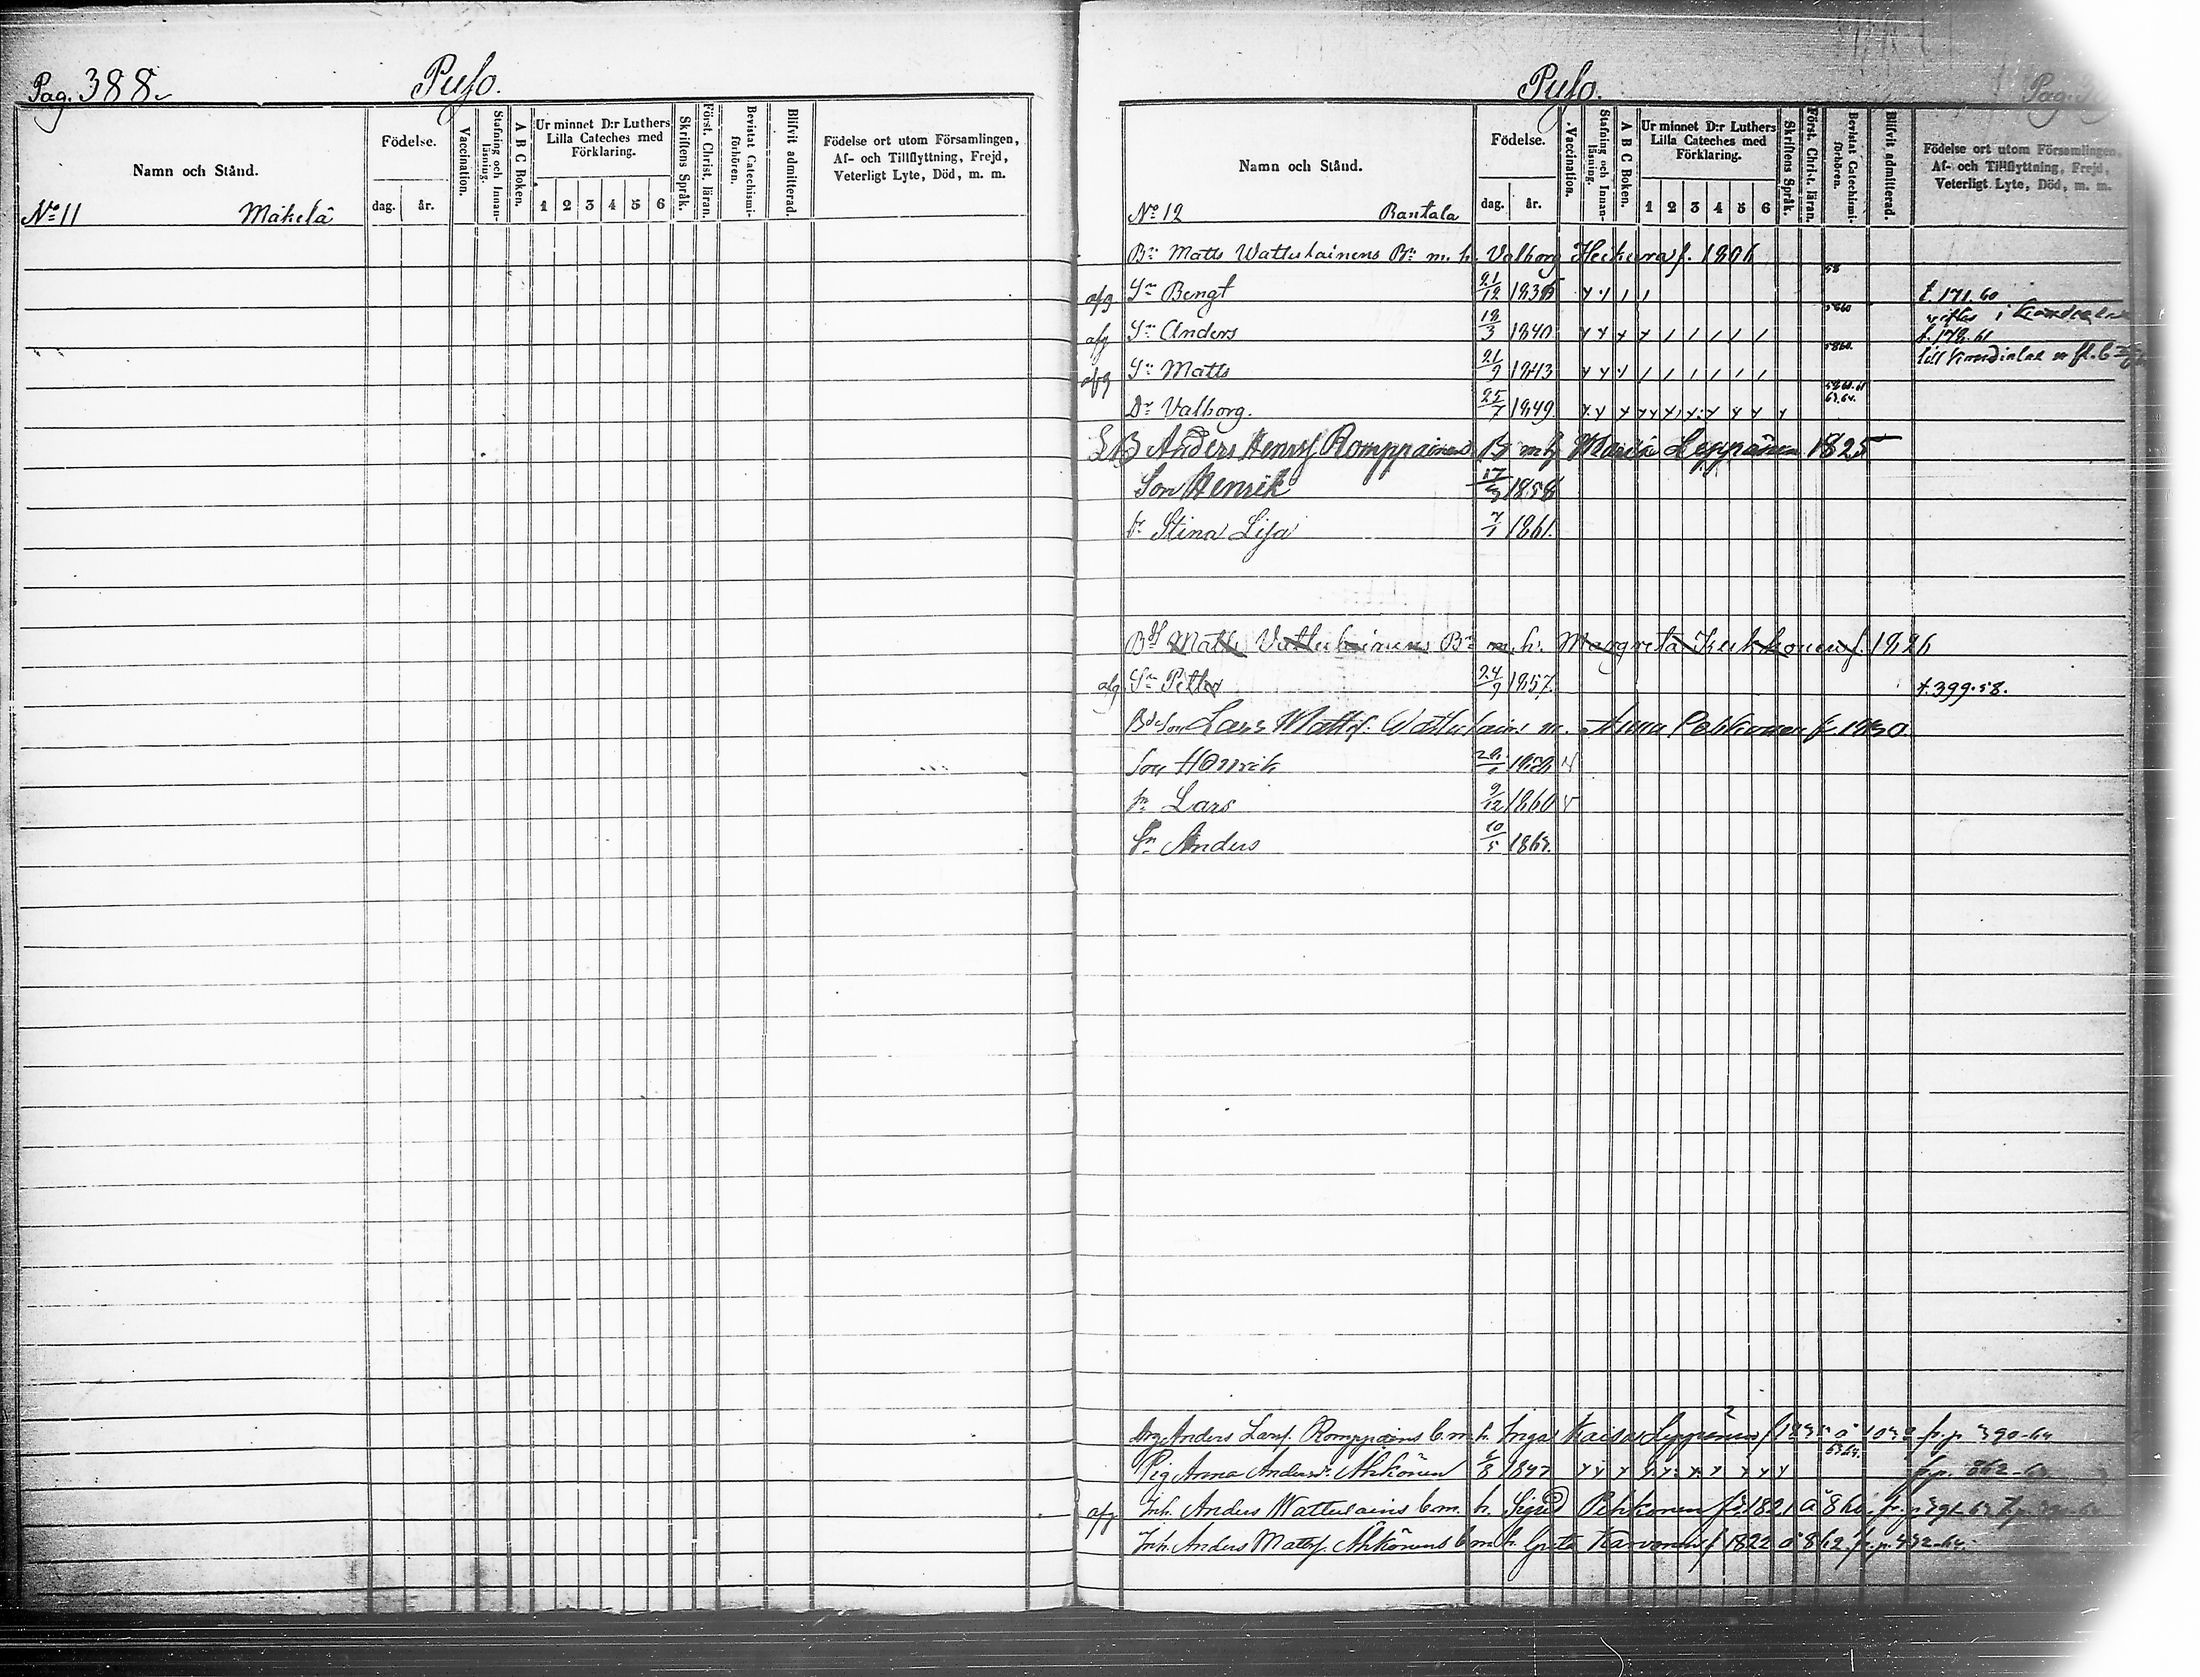 Pag. 388.
Puso.
Namn och Stånd.
Födelse.
dag.
år.
Vaccination.
Stafning och Innanläsning.
A B C Boken.
Ur minnet D:r Luthers Lilla Cateches med Förklaring.
1 2 3 4 5 6
Skriftens Språk.
Först. Christ. läran.
Bevistat Catechismiförhören.
Blifvit admitterad.
Födelse ort utom Församlingen,
Af- och Tillflyttning, Frejd,
Veterligt Lyte, Död, m. m.
No 11 Mäkelä
Puso.
Pag.
Namn och Stånd.
Födelse.
dag.
år.
Vaccination.
Stafning och Innanläsning.
A B C Boken.
Ur minnet D:r Luthers Lilla Cateches med Förklaring.
1 2 3 4 5 6
Skriftens Språk.
Först. Christ. läran.
Bevistat Catechismiförhören.
Blifvit admitterad.
Födelse ort utom Församlingen,
Af- och Tillflyttning, Frejd,
Veterligt Lyte, Död, m. m.
No 12 Rantala
Bn Matts Wattulainens Bn m. h. Valborg f. 1806
afg Sn Bengt 21/12 58 t. 171. 60
afg Sn Anders 18/3 1840 5860 t. 178. 61
afg Sn Matts 21/9 1843 5860 till
Dr Valborg. 25/7 1849 63.64.
LB Anders Henrs. Romppainens B m h Maria Leppänen 1825
Son Henrik 17/3 1858
Dr Stina Lisa 7/1 1861.
Matts Vattulainens Bn m. h. Margreta Kukkonen f. 1826
afg Sn Petter 24/9 1857. t. 399. 58.
Bds son Lars Mattss. Wattulains m. Anna Pekkonen f. 1830.
Son Henrik
Sn Lars 9/12 1860
Sn Anders 10/5 1863.
Drg Anders Larss. Romppains b m h. Inga Kaisa Leppänen f. p. 390-64
Pig Anna Andersd. Ahkönen 6/8 1847 63.64. f. p. 862-63
afg Inh. Anders Wattulains b m. h. Sigrid Pekkonen f. 1821
Inh. Anders Mattss. Ahkönens b m h. Greta Karvonen f 1822 å 862 fr. p. 432-64.